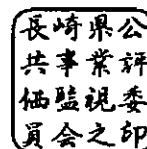 長崎県公
共事業評
価監視委
員会之印